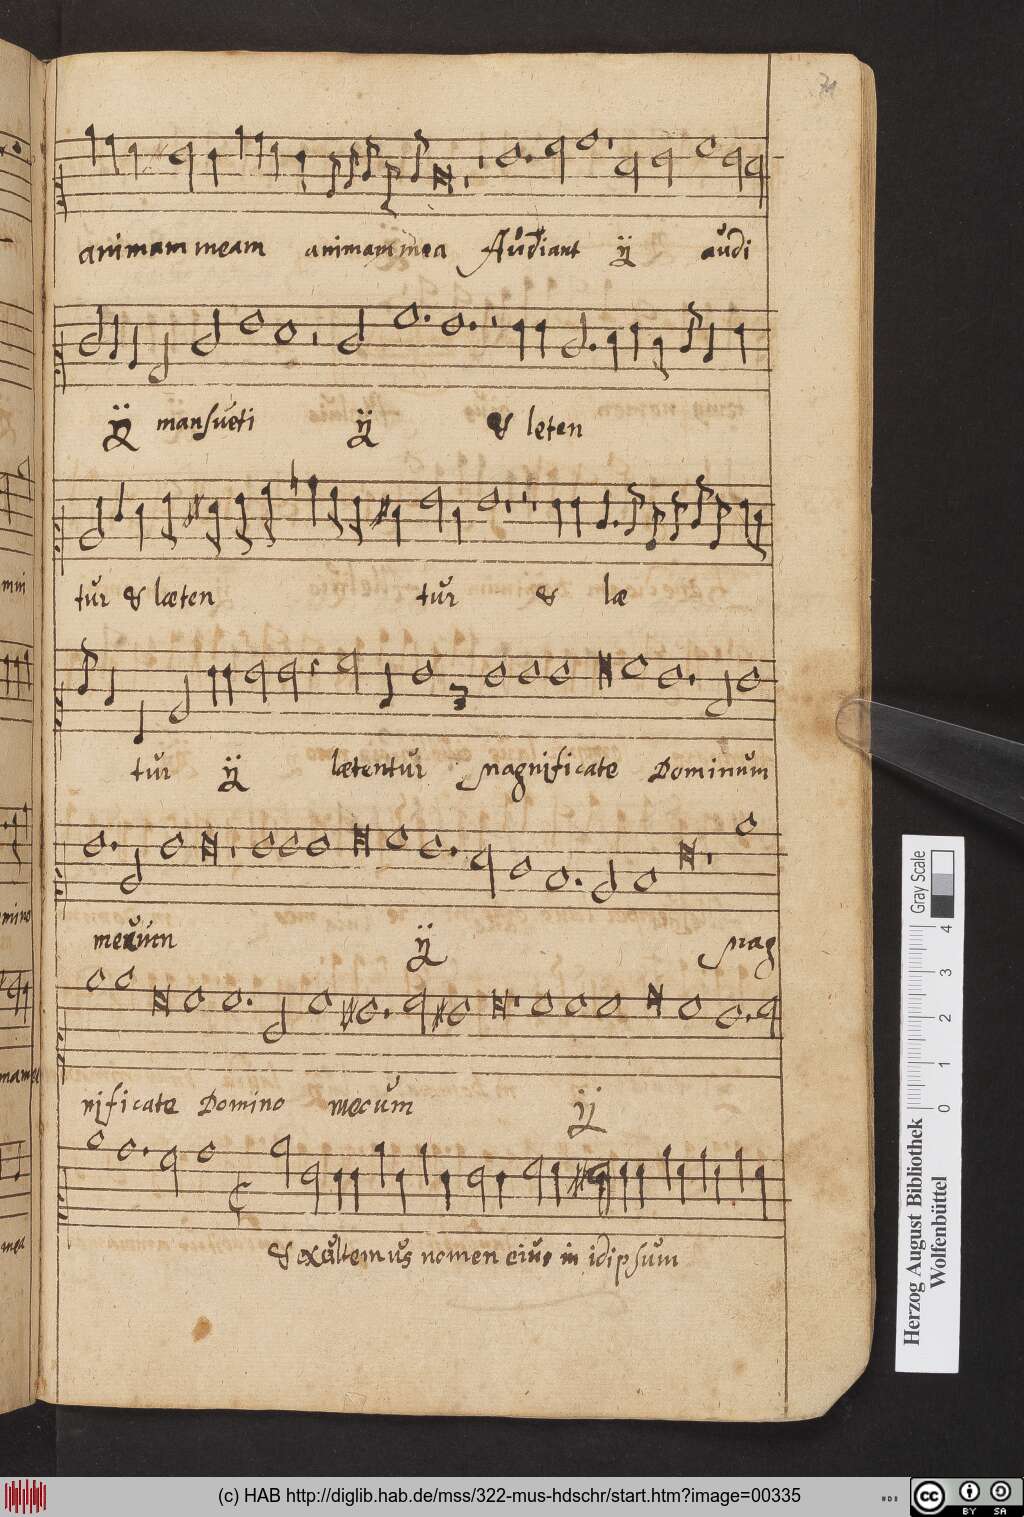 71
animam meam animam mea Audiant ij audi
ij mansueti ij & leten
tur & læten tur & læ
tur ij lætentur magnificate Dominum
mecum ij mag
nificate Domino mecum ij
& exultemus nomen eius in idipsum
mini
mino
mea
Gray Scale
0 1 2 3 4
Herzog August Bibliothek
Wolfenbüttel
(c) HAB http://diglib.hab.de/mss/322-mus-hdschr/start.htm?image=00335
cc BY SA